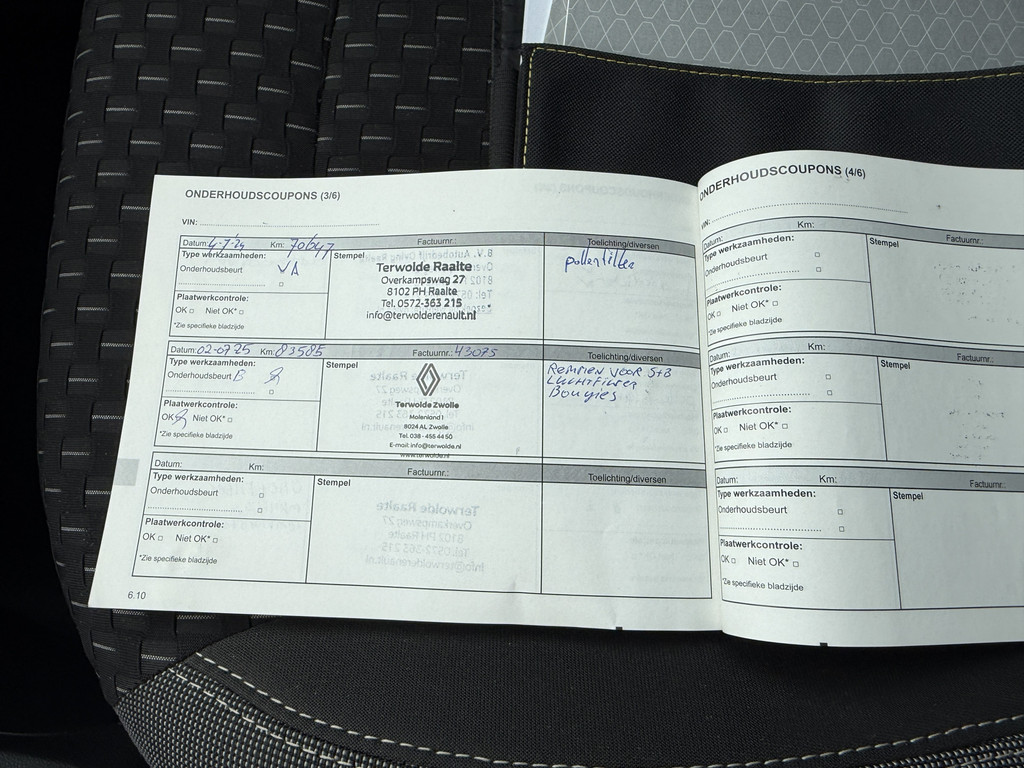 ONDERHOUDSCOUPONS (3/6)
VIN:
Datum: 4-7-24 Km: 70647 Factuurnr.: Toelichting/diversen
Type werkzaamheden: Stempel
Onderhoudsbeurt A
pollenfilter
Terwolde Raalte
Overkampsweg 27
8102 PH Raalte
Tel. 0572-363 215
info@terwolderenault.nl
Plaatwerkcontrole:
OK Niet OK*
*Zie specifieke bladzijde
Datum: 02-07-25 Km: 83585 Factuurnr.: 43075 Toelichting/diversen
Type werkzaamheden: Stempel
Onderhoudsbeurt B
Remmen voor S+B
Luchtfilter
Bougies
Terwolde Zwolle
Molenland 1
8024 AL Zwolle
Tel. 038 - 455 44 50
E-mail: info@terwolde.nl
www.terwolde.nl
Plaatwerkcontrole:
OK Niet OK*
*Zie specifieke bladzijde
Datum: Km: Factuurnr.: Toelichting/diversen
Type werkzaamheden: Stempel
Onderhoudsbeurt
Plaatwerkcontrole:
OK Niet OK*
*Zie specifieke bladzijde
6.10
ONDERHOUDSCOUPONS (4/6)
VIN:
Datum: Km: Factuurnr.:
Type werkzaamheden: Stempel
Onderhoudsbeurt
Plaatwerkcontrole:
OK Niet OK*
*Zie specifieke bladzijde
Datum: Km: Factuurnr.:
Type werkzaamheden: Stempel
Onderhoudsbeurt
Plaatwerkcontrole:
OK Niet OK*
*Zie specifieke bladzijde
Datum: Km: Factuurnr.:
Type werkzaamheden: Stempel
Onderhoudsbeurt
Plaatwerkcontrole:
OK Niet OK*
*Zie specifieke bladzijde